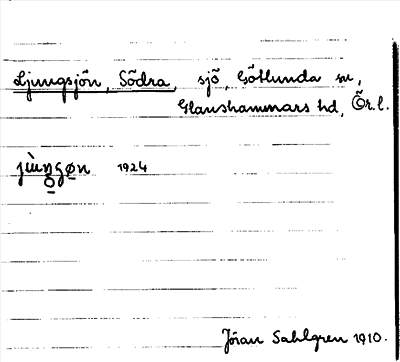 Ljungsjön, Södra, sjö, Götlunda sn,
Glanshammars hd, Ör. l.
jùngøn 1924
Jöran Sahlgren 1910.